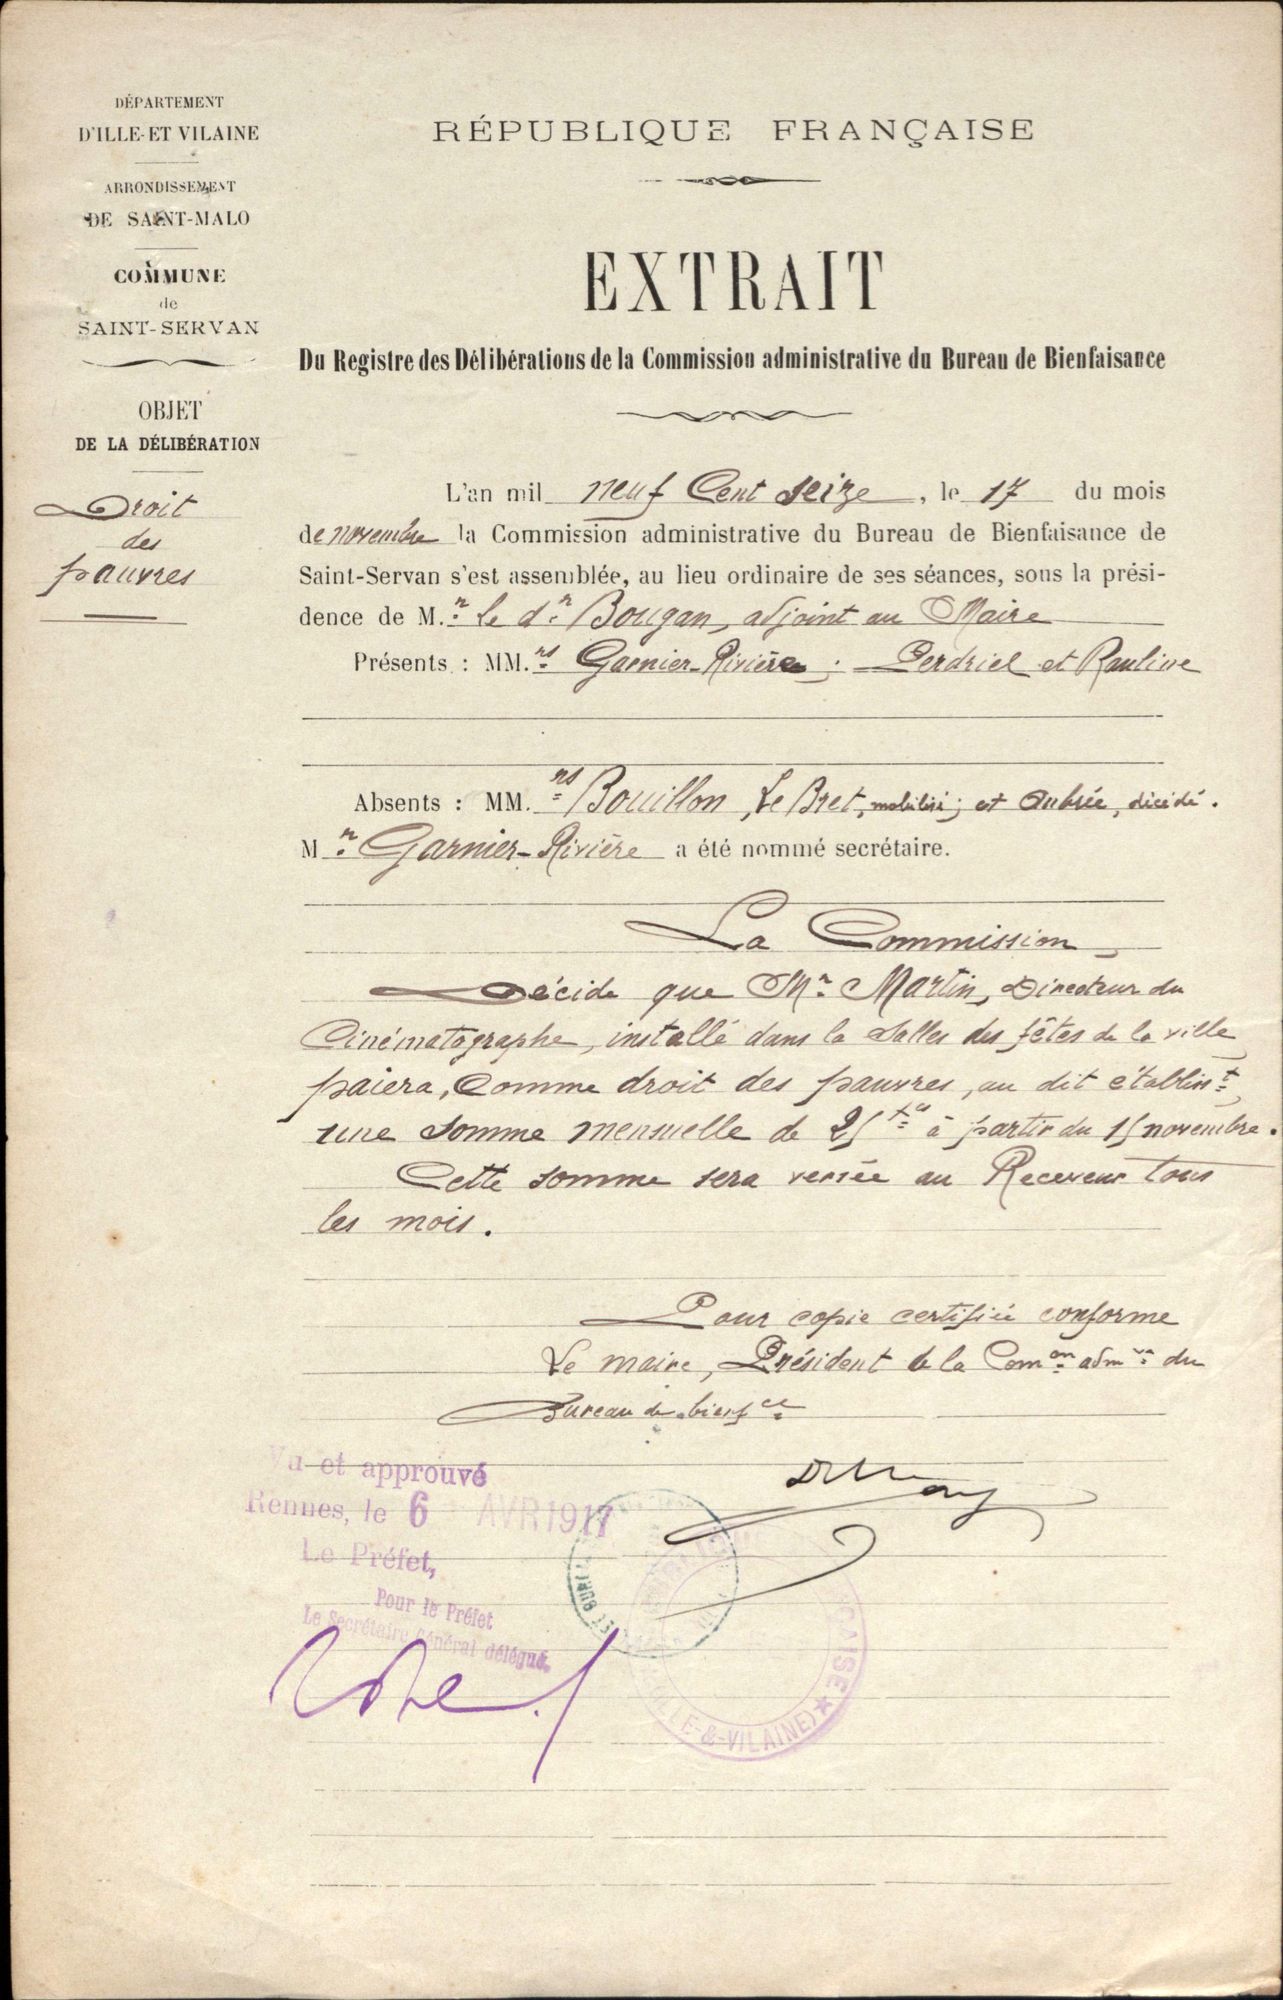 DÉPARTEMENT
D'ILLE-ET VILAINE
ARRONDISSEMENT
DE SAINT-MALO
COMMUNE
de
SAINT-SERVAN
OBJET
DE LA DÉLIBÉRATION
Droit
des
pauvres
RÉPUBLIQUE FRANÇAISE
EXTRAIT
Du Registre des Délibérations de la Commission administrative du Bureau de Bienfaisance
L'an mil neuf Cent seize, le 17 du mois
de novembre la Commission administrative du Bureau de Bienfaisance de
Saint-Servan s'est assemblée, au lieu ordinaire de ses séances, sous la prési-
dence de M.r le dr Bougan, adjoint au Maire
Présents : MM.rs Garnier-Rivière ; Perdriel et Rauline
Absents : MM.rs Bouillon, Le Bret, mobilisé ; et Aubrée, décédé.
Mr Garnier-Rivière a été nommé secrétaire.
La Commission,
Décide que Mr Martin, Directeur du
Cinématographe, installé dans la Salles des fêtes de la ville
paiera, Comme droit des pauvres, au dit établisst,
une somme mensuelle de 25 fcs à partir du 15 novembre.
Cette somme sera versée au Receveur tous
les mois.
Pour copie certifiée conforme
Le maire, Président de la Comon admve du
Bureau de bienfce
Vu et approuvé
Rennes, le 6 AVR 1917
Le Préfet,
Pour le Préfet
Le Secrétaire Général délégué,
ILLE-&-VILAINE)